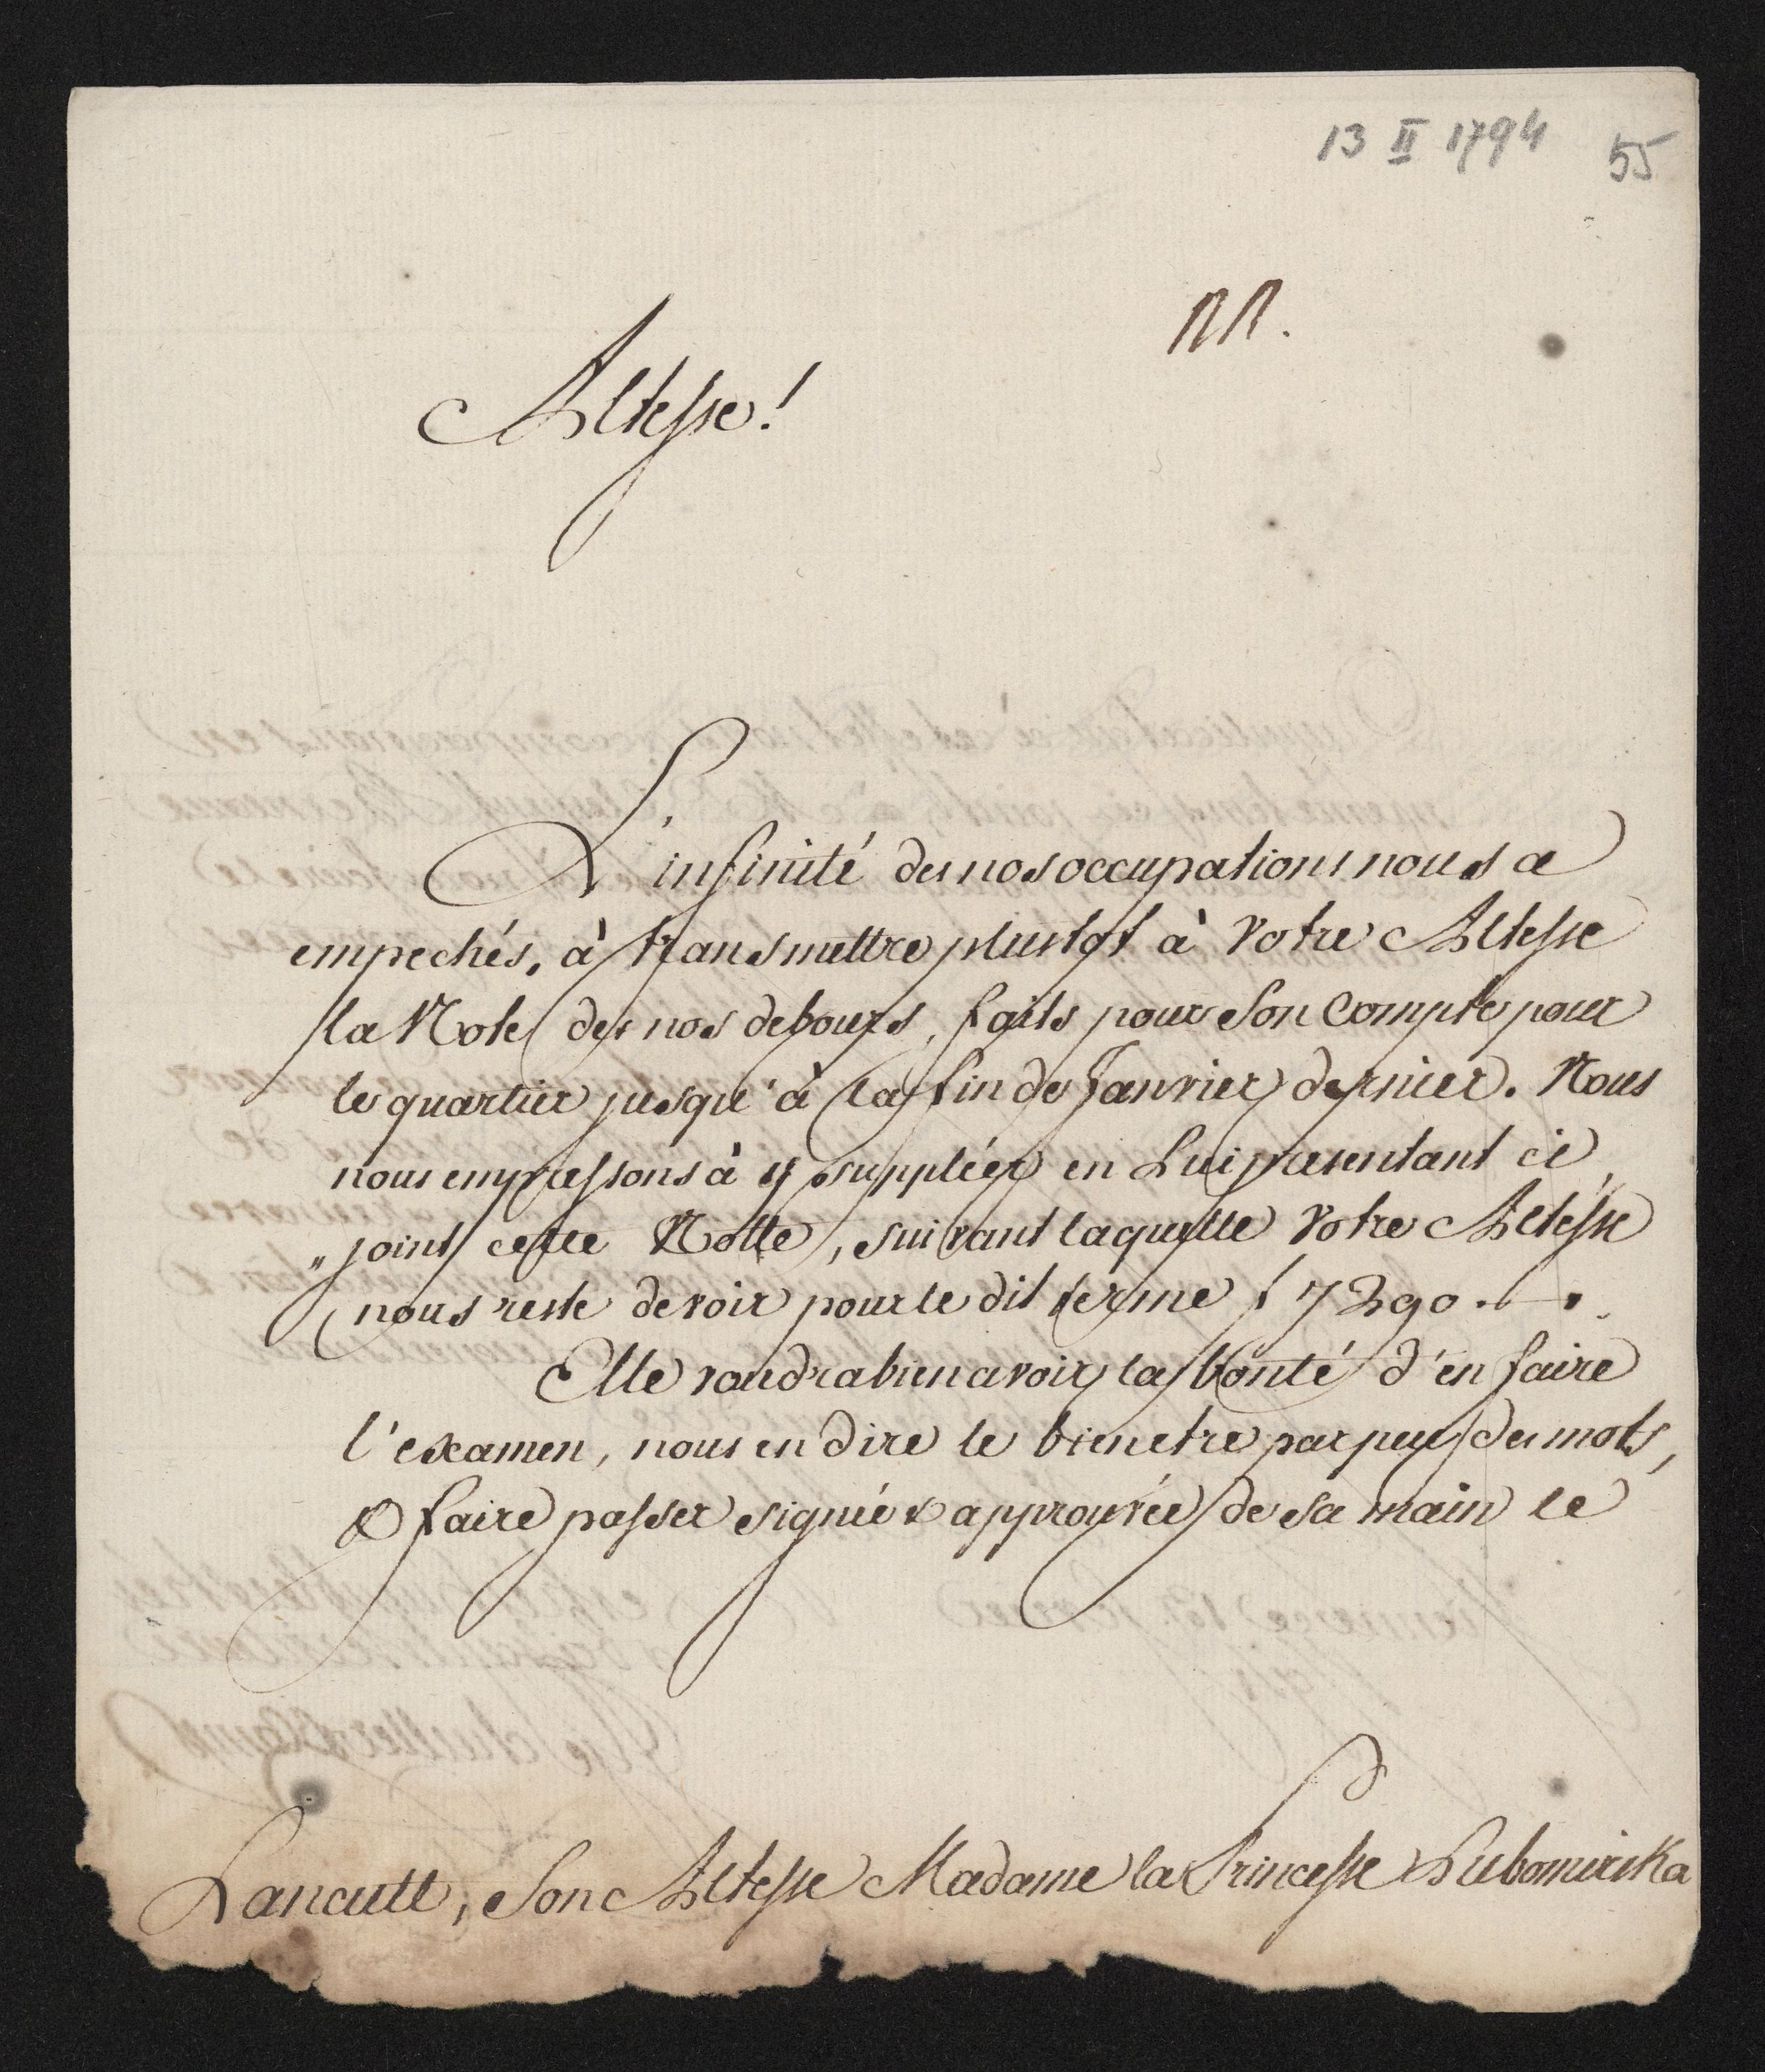 13 II 1794 55
NN.
Altesse!
L'infinité de nos occupations nous a
empechés, à transmettre plustot à Votre Altesse
la Note de nos debours, faits pour Son Compte pour
le quartier jusqu'à la fin de Janvier dernier. Nous
nous empressons à y suppléer en Lui presentant ci
„joint cette Notte, suivant laquelle Votre Altésse
nous reste devoir pour le dit terme f 7290.
Elle voudra bien avoir la bonté d'en faire
l'examen, nous en dire le bienetre par peu de mots,
& faire passer signée & approuvée de Sa main le
Lancutt, Son Altesse Madame la Princesse Lubomirska